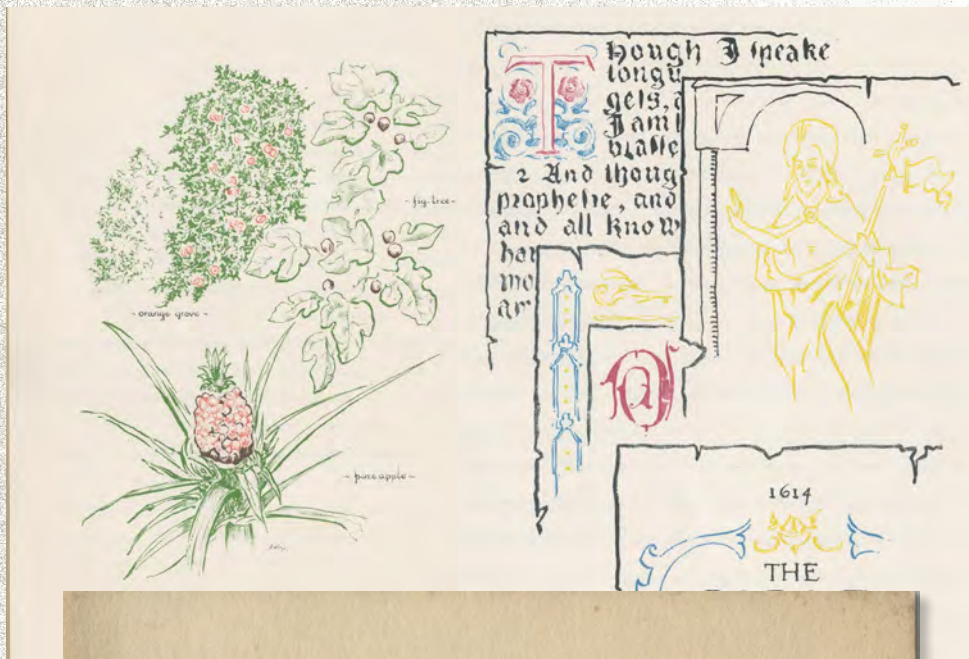 - fig-tree -
- orange grove -
- pineapple -
Though I speake
tongu
gels, a
I am
brasse
2 And thoug
prophesie, and
and all know
ha
mo
am
a
1614
THE